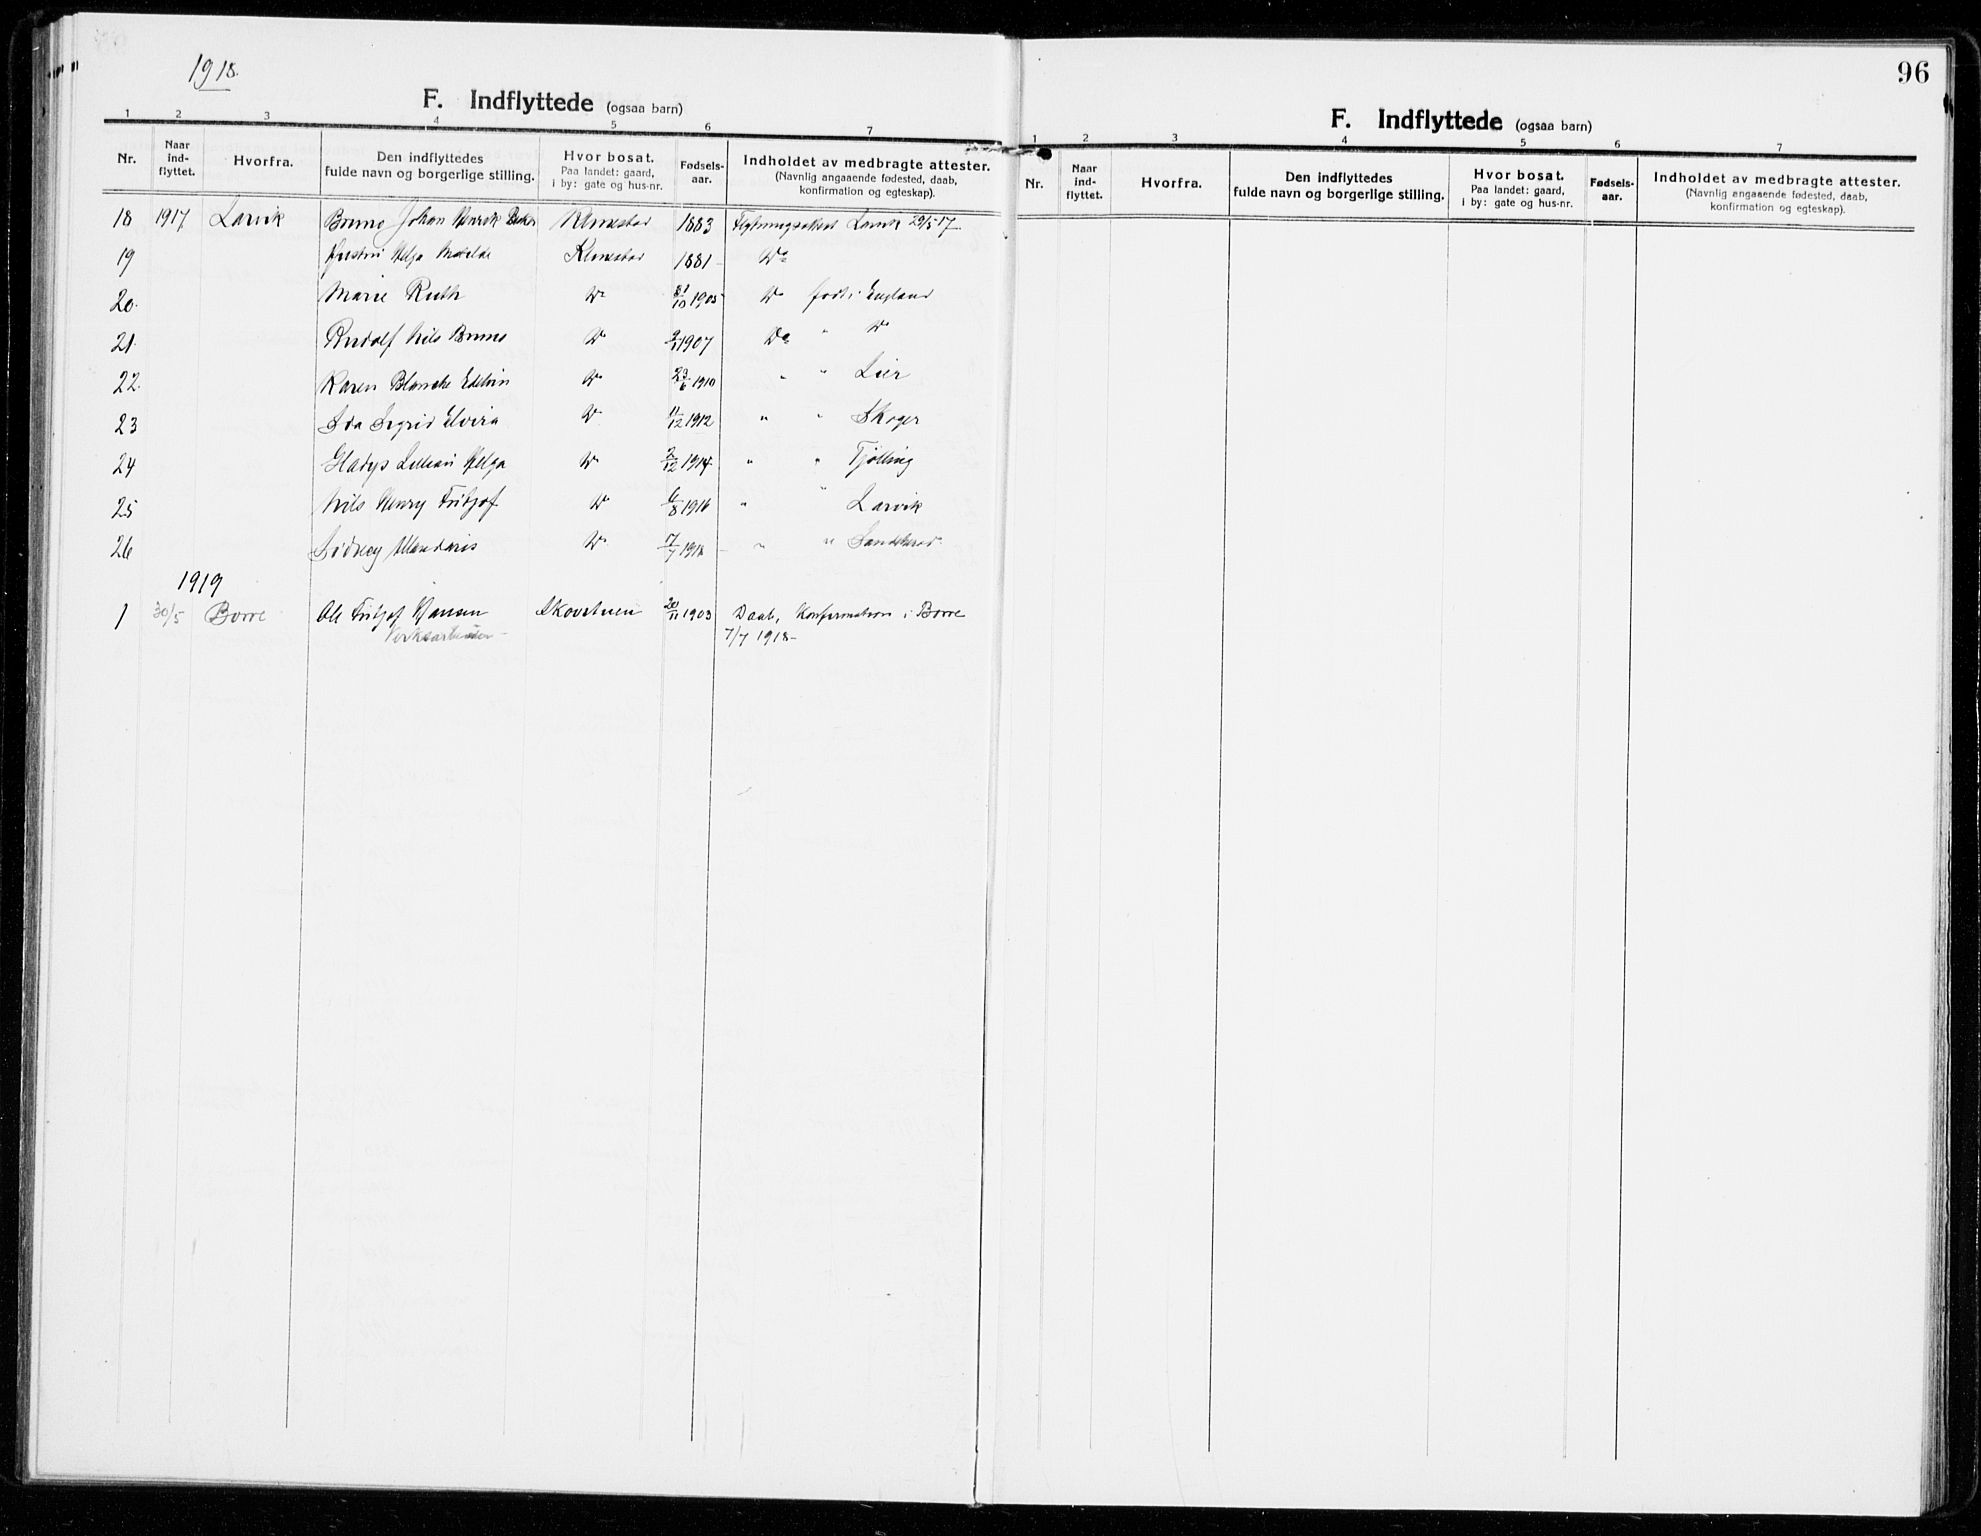 1918.
96
F. Indflyttede (ogsaa barn)
1 2 3 4 5 6 7
Nr. Naar ind-flyttet. Hvorfra. Den indflyttedes fulde navn og borgerlige stilling. Hvor bosat. Paa landet: gaard, i by: gate og hus-nr. Fødsels-aar. Indholdet av medbragte attester. (Navnlig angaaende fødested, daab, konfirmation og egteskap).
18 1917 Larvik Bruno Johan Klinestad 1883 Larvik 29/5 17
19 Helga Klinestad 1881 Do
20. Marie Ruth Do 31/10 1905 Do født i England
21. Rudolf Nils Bruno Do 1907 Do " Do
22. Karen Blanche Do 29/6 1910 " " Lier
23 Sigrid Elvira Do 11/12 1912 " " Skoger
24 Gladys Lillian Helga Do 2/12 1914 " " Tjølling
25 Nils Henry Fritjof Do 6/8 1916 " " Larvik
26 Sidney Do 17/7 1918 " " Sandeherad
1919
1 30/5 Borre Ole Fritjof Hansen 20/11 1903 Daab, Konfirmation i Borre
7/7 1918 -
F. Indflyttede (ogsaa barn)
1 2 3 4 5 6 7
Nr. Naar ind-flyttet. Hvorfra. Den indflyttedes fulde navn og borgerlige stilling. Hvor bosat. Paa landet: gaard, i by: gate og hus-nr. Fødsels-aar. Indholdet av medbragte attester. (Navnlig angaaende fødested, daab, konfirmation og egteskap).